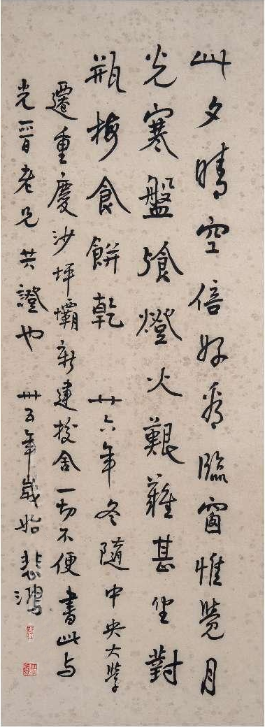 此夕晴空倍好看臨窗惟覺月
光寒盤飱燈火艱難甚坐對
瓶梅食餅乾 廿六年冬隨中央大學
遷重慶沙坪壩新建校舍一切不便書此與
光晉老兄共證也 卅五年歲始 悲鴻